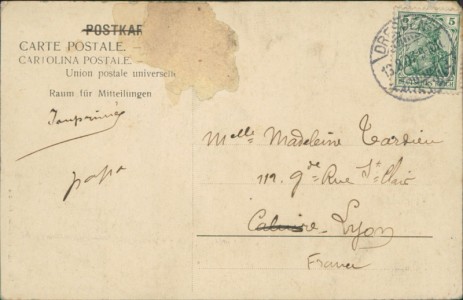 POSTKAR
CARTE POSTALE. —
CARTOLINA POSTALE —
Union postale universelle
Raum für Mitteilungen
5
DRESDEN
Imprimé
papa
Melle Madeleine Tardieu
119, Gde Rue St Clair
Caluire Lyon
France